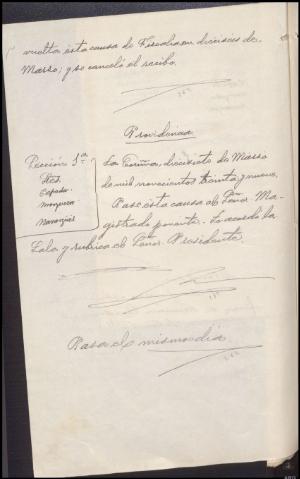 vuelta esta causa de Fiscalía en dieciseis de
Marzo; y se canceló el recibo.
Providencia
Sección 1ª
Sres.
Capada
Mosquera
Navazués
La Coruña, diecisiete de Marzo
de mil novecientos treinta y nueve.
Pase esta causa al Señor Ma-
gistrado ponente. Lo acordó la
Sala y rubrica el Señor Presidente.
Pasa el mismo día